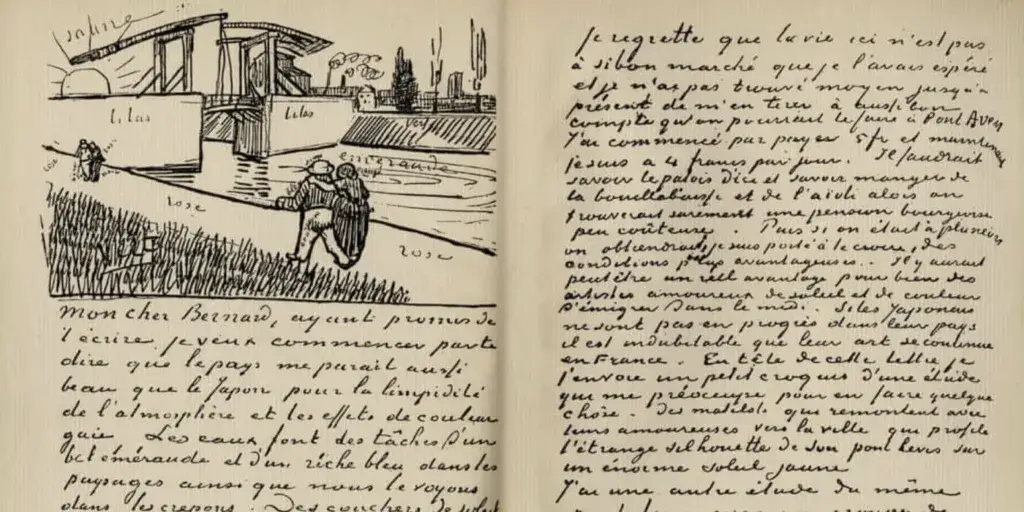 jaune
lilas
lilas
vert
emeraude
rose
rose
Mon cher Bernard, ayant promis de
t'écrire je veux commencer par te
dire que le pays me parait aussi
beau que le Japon pour la limpidité
de l'atmosphère et les effets de couleur
gaie. Les eaux font des tâches d'un
bel éméraude et d'un riche bleu dans les
paysages ainsi que nous le voyons
dans les crepons. Des couchers de soleil
Je regrette que la vie ici n'est pas
à si bon marché que je l'avais espéré
et je n'ai pas trouvé moyen jusqu'à
présent de m'en tirer à aussi bon
compte qu'on pourrait le faire à Pont Aven
J'ai commencé par payer 5 fr et maintenant
je suis a 4 francs par jour. Il faudrait
savoir le patois d'ici et savoir manger de
la bouillabaisse et de l'aïoli alors on
trouverait surement une pension bourgeoise
peu coûteuse. Puis si on était à plusieurs
on obtiendrait, je suis porté à le croire, des
conditions plus avantageuses. Il y aurait
peutêtre un réel avantage pour bien des
artistes amoureux de soleil et de couleur
d'émigrer dans le midi. Si les Japonais
ne sont pas en progrès dans leur pays
il est indubitable que leur art se continue
en France. En tête de cette lettre je
t'envoie un petit croquis d'une étude
qui me préoccupe pour en faire quelque
chose. Des matelots qui remontent avec
leurs amoureuses vers la ville qui profile
l'étrange silhouette de son pont levis sur
un énorme soleil jaune
J'ai une autre étude du même